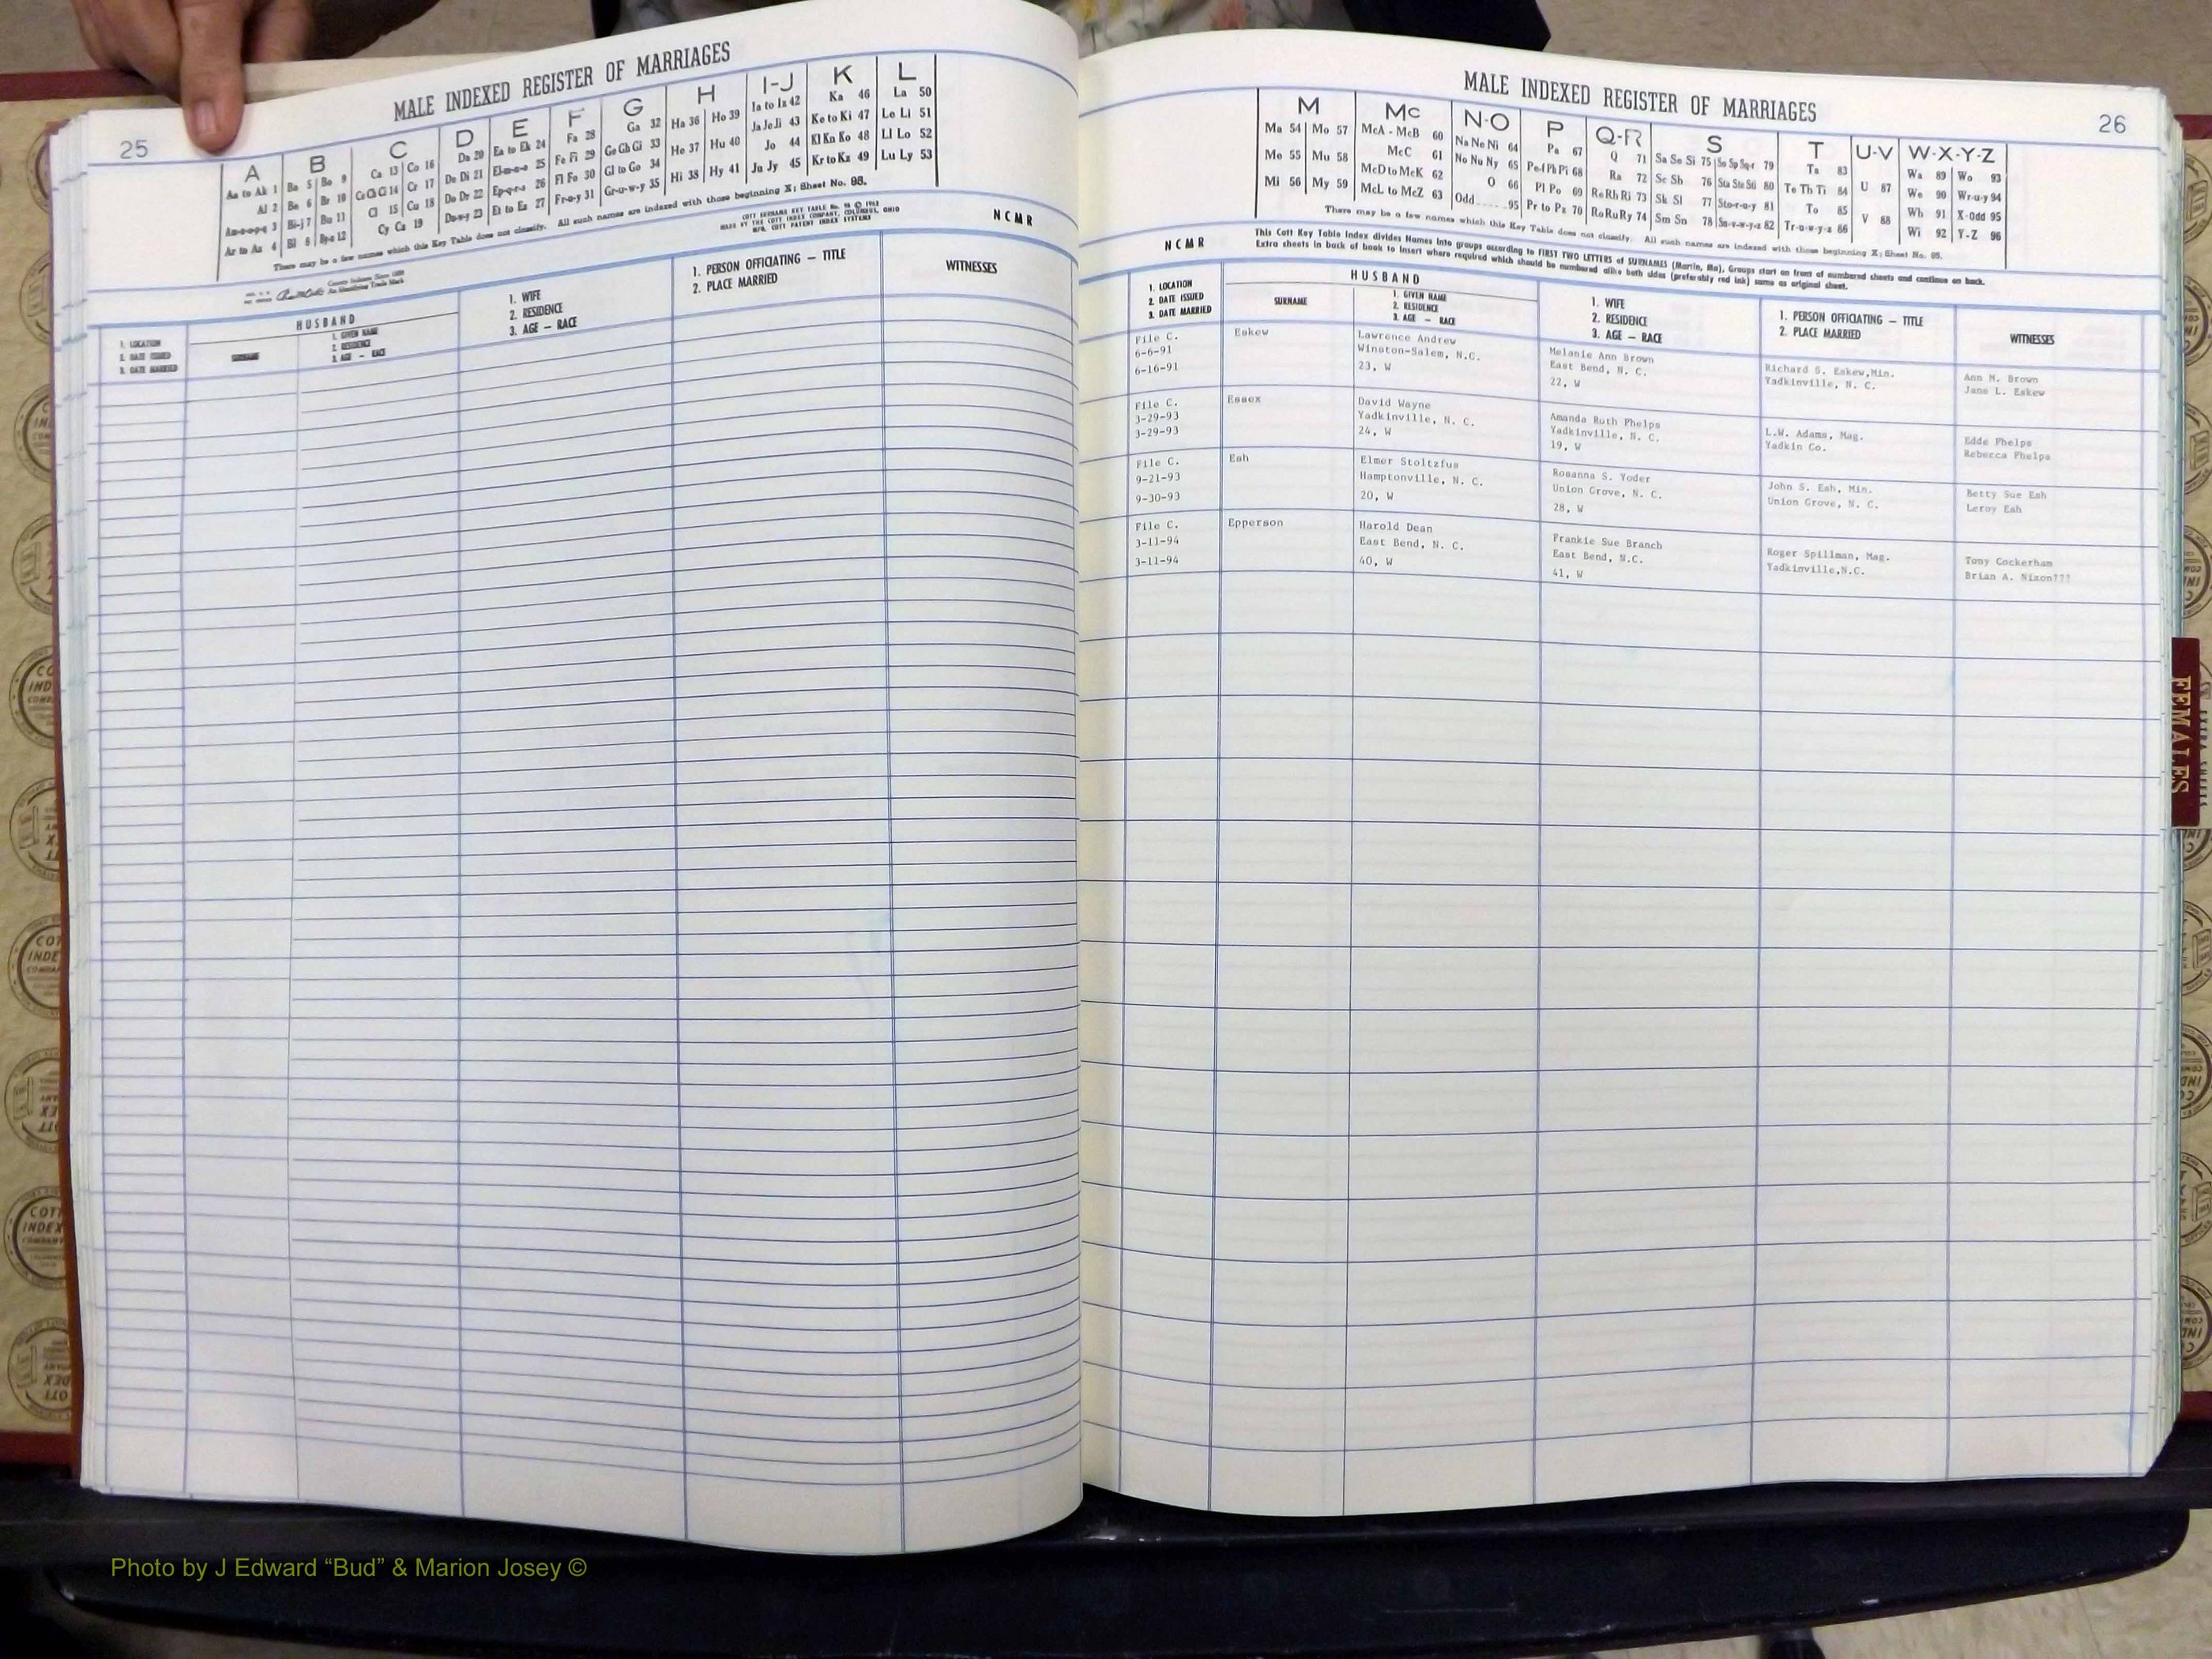 MALE INDEXED REGISTER OF MARRIAGES
25
A B C D E F G H I-J K L
Aa to Ak 1 Ba 5 Bo 9 Ca 13 Co 16 Da 20 Ea to Ek 24 Fa 28 Ga 32 Ha 36 Ho 39 Ia to Iz 42 Ka 46 La 50
Al 2 Be 6 Br 10 Ce Ch Ci 14 Cr 17 De Di 21 El-m-n-o 25 Fe Fi 29 Ge Gh Gi 33 He 37 Hu 40 Ja Je Ji 43 Ke to Ki 47 Le Li 51
Am-n-o-p-q 3 Bi-j 7 Bu 11 Cl 15 Cu 18 Do Dr 22 Ep-q-r-s 26 Fl Fo 30 Gl to Go 34 Hi 38 Hy 41 Jo 44 Kl Kn Ko 48 Ll Lo 52
Ar to Az 4 Bl 8 By-z 12 Cy Cz 19 Du-w-y 23 Et to Ez 27 Fr-u-y 31 Gr-u-w-y 35 Ju Jy 45 Kr to Kz 49 Lu Ly 53
There may be a few names which this Key Table does not classify. All such names are indexed with those beginning X; Sheet No. 95.
MADE BY THE COTT INDEX COMPANY, COLUMBUS, OHIO
NCMR
HUSBAND
1. LOCATION
2. DATE ISSUED
3. DATE MARRIED
SURNAME
1. GIVEN NAME
2. RESIDENCE
3. AGE — RACE
1. WIFE
2. RESIDENCE
3. AGE — RACE
1. PERSON OFFICIATING — TITLE
2. PLACE MARRIED
WITNESSES
MALE INDEXED REGISTER OF MARRIAGES
26
M Mc N-O P Q-R S T U-V W-X-Y-Z
Ma 54 Mo 57 McA - McB 60 Na Ne Ni 64 Pa 67 Q 71 Sa Se Si 75 So Sp Sq-r 79 Ta 83 Wa 89 Wo 93
Me 55 Mu 58 McC 61 No Nu Ny 65 Pe-f Ph Pi 68 Ra 72 Sc Sh 76 Sta Ste Sti 80 Te Th Ti 84 U 87 We 90 Wr-u-y 94
Mi 56 My 59 McD to McK 62 O 66 Pl Po 69 Re Rh Ri 73 Sk Sl 77 Sto-r-u-y 81 To 85 Wh 91 X-Odd 95
McL to McZ 63 Odd 95 Pr to Pz 70 Ro Ru Ry 74 Sm Sn 78 Su-v-w-y-z 82 Tr-u-w-y-z 86 V 88 Wi 92 Y-Z 96
There may be a few names which this Key Table does not classify. All such names are indexed with those beginning X; Sheet No. 95.
NCMR
This Cott Key Table Index divides Names into groups according to FIRST TWO LETTERS of SURNAMES (Martin, Ma), Groups start on front of numbered sheets and continue on back.
Extra sheets in back of book to insert where required which should be numbered alike both sides (preferably red ink) same as original sheet.
HUSBAND
1. LOCATION
2. DATE ISSUED
3. DATE MARRIED
SURNAME
1. GIVEN NAME
2. RESIDENCE
3. AGE — RACE
1. WIFE
2. RESIDENCE
3. AGE — RACE
1. PERSON OFFICIATING — TITLE
2. PLACE MARRIED
WITNESSES
File C. Eskew Lawrence Andrew Melanie Ann Brown Richard S. Eskew,Min. Ann M. Brown
6-6-91 Winston-Salem, N.C. East Bend, N. C. Yadkinville, N. C. Jane L. Eskew
6-16-91 23, W 22, W
File C. Essex David Wayne Amanda Ruth Phelps L.W. Adams, Mag. Edde Phelps
3-29-93 Yadkinville, N. C. Yadkinville, N. C. Yadkin Co. Rebecca Phelps
3-29-93 24, W 19, W
File C. Esh Elmer Stoltzfus Rosanna S. Yoder John S. Esh, Min. Betty Sue Esh
9-21-93 Hamptonville, N. C. Union Grove, N. C. Union Grove, N. C. Leroy Esh
9-30-93 20, W 28, W
File C. Epperson Harold Dean Frankie Sue Branch Roger Spillman, Mag. Tony Cockerham
3-11-94 East Bend, N. C. East Bend, N.C. Yadkinville,N.C. Brian A. Nixon???
3-11-94 40, W 41, W
FEMALES
Photo by J Edward “Bud” & Marion Josey ©